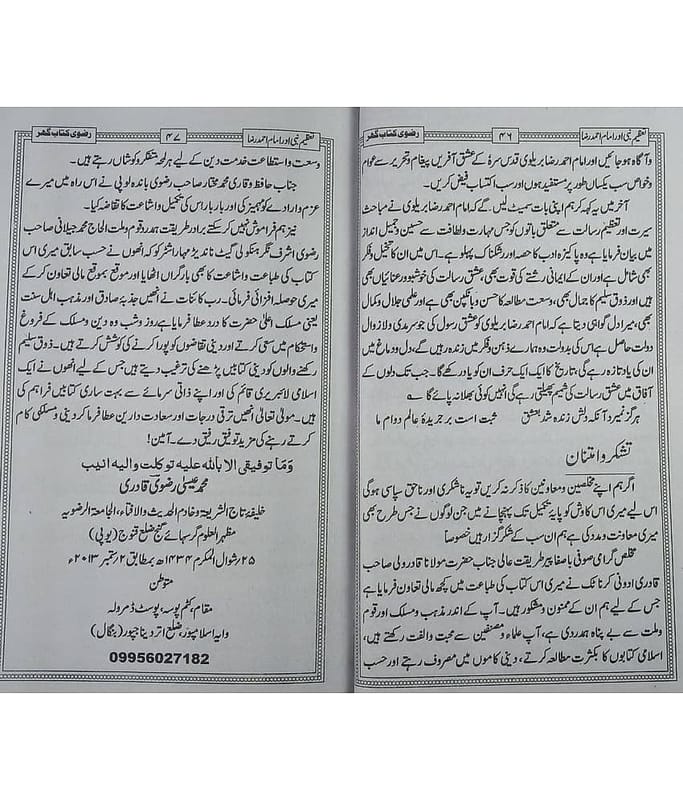 تعظیم نبی اور امام احمد رضا
۴۶
رضوی کتاب گھر
و آگاہ ہو جائیں اور امام احمد رضا بریلوی قدس سرہٗ کے عشق آفریں پیغام و تحریر سے عوام
و خواص سب یکساں طور پر مستفید ہوں اور سب اکتساب فیض کریں۔
آخر میں یہ کہہ کر ہم اپنی بات سمیٹ لیں گے کہ امام احمد رضا بریلوی نے مباحث
سیرت اور تعظیم رسالت سے متعلق باتوں کو جس مہارت و لطافت سے حسین و جمیل انداز
میں بیان فرمایا ہے وہ پاکیزہ ادب کا حصہ اور رشکناک پہلو ہے۔ اس میں ان کا تخیل و فکر
بھی شامل ہے اور ان کے ایمانی رشتے کی قوت بھی، عشق رسالت کی خوشبو و رعنائیاں بھی
ہیں اور ذوق سلیم کا جمال بھی، وسعت مطالعہ کا حسن و بانکپن بھی ہے اور علمی جلال و کمال
بھی، میرا دل گواہی دیتا ہے کہ امام احمد رضا بریلوی کو عشق رسول کی جو سرمدی و لازوال
دولت حاصل ہے اس کی بدولت وہ ہمارے ذہن و فکر میں زندہ رہیں گے، دل و دماغ میں
ان کی یاد تازہ رہے گی، تاریخ کا ایک ایک حرف ان کو یاد رکھے گا۔ جب تک دلوں کے
آفاق میں عشق رسالت کی شمیم پھیلتی رہے گی انھیں کوئی بھلا نہ پائے گا ؎
ہرگز نمیرد آنکہ دلش زندہ شد بعشق ثبت است بر جریدۂ عالم دوام ما
تشکر و امتنان
اگر ہم اپنے مخلصین و معاونین کا ذکر نہ کریں تو یہ ناشکری اور ناحق سپاسی ہوگی
اس لیے میری اس کاوش کو پایۂ تکمیل تک پہنچانے میں جن لوگوں نے جس طرح بھی
میری معاونت و مدد کی ہے ہم ان سب کے شکر گزار ہیں خصوصاً
مخلص گرامی صوفی باصفا پیر طریقت عالی جناب حضرت مولانا قادر ولی صاحب
قادری ادونی کرناٹک نے میری اس کتاب کی طباعت میں کچھ مالی تعاون فرمایا ہے
جس کے لیے ہم ان کے ممنون و مشکور ہیں۔ آپ کے اندر مذہب و مسلک اور قوم
و ملت سے بے پناہ ہمدردی ہے، آپ علماء و مصنفین سے محبت و الفت رکھتے ہیں،
اسلامی کتابوں کا بکثرت مطالعہ کرتے، دینی کاموں میں مصروف رہتے اور حسب
تعظیم نبی اور امام احمد رضا
۴۷
رضوی کتاب گھر
وسعت و استطاعت خدمت دین کے لیے ہر لمحہ متفکر و کوشاں رہتے ہیں۔
جناب حافظ و قاری محمد مختار صاحب رضوی باندہ لوپی نے اس راہ میں میرے
عزم و ارادے کو مہمیز کی اور بار بار اس کی تکمیل و اشاعت کا تقاضہ کیا۔
نیز ہم فراموش نہیں کر سکتے برادر طریقت ہمدرد قوم و ملت الحاج محمد جیلانی صاحب
رضوی اشرف نگر ہنگولی گیٹ ناندیڑ مہاراشٹر کو کہ انھوں نے حسب سابق میری اس
کتاب کی طباعت و اشاعت کا بھی بار گراں اٹھایا اور موقع بموقع مالی تعاون کر کے
میری حوصلہ افزائی فرمائی۔ رب کائنات نے انھیں جذبۂ صادق اور مذہب اہل سنت
یعنی مسلک اعلیٰ حضرت کا درد عطا فرمایا ہے روز و شب وہ دین و مسلک کے فروغ
و استحکام میں سعی کرتے اور دینی تقاضوں کو پورا کرنے کی کوشش کرتے ہیں۔ ذوق سلیم
رکھنے والوں کو دینی کتابیں پڑھنے کی ترغیب دیتے ہیں جس کے لیے انھوں نے ایک
اسلامی لائبریری قائم کی اور اپنے ذاتی سرمائے سے بہت ساری کتابیں فراہم کی
ہیں۔ مولیٰ تعالیٰ انھیں ترقی درجات اور سعادت دارین عطا فرما کر دینی و مسلکی کام
کرتے رہنے کی مزید توفیق رفیق دے۔ آمین!
وما توفیقی الا باللہ علیہ توکلت والیہ انیب
محمد عیسیٰ رضوی قادری
خلیفۂ تاج الشریعۃ و خادم الحدیث والافتاء، الجامعۃ الرضویہ
مظہر العلوم گرسہائے گنج ضلع قنوج (یوپی)
۲۵ رشوال المکرم ۱۴۳۴ھ بمطابق ۲ ستمبر ۲۰۱۳ء
متوطن
مقام، کٹم پوسہ، پوسٹ ڈمرولہ
وایہ اسلامپور، ضلع اتر دیناجپور (بنگال)
09956027182